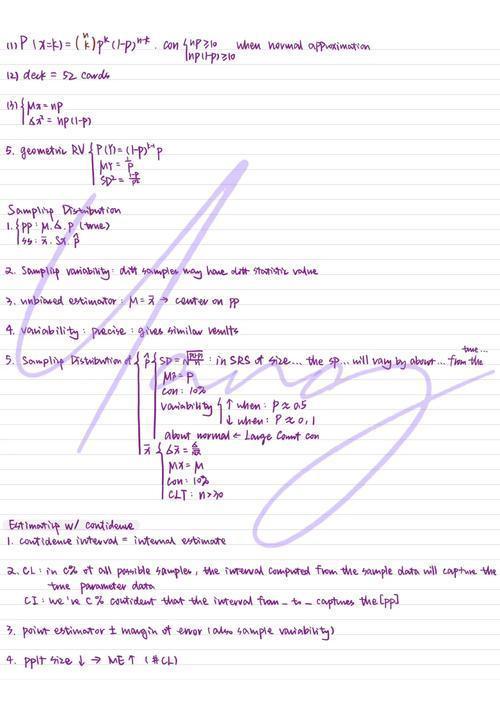 (1) P (x=k) = (n k) p^k (1-p)^n-k . con { np ≥ 10 when normal approximation
np(1-p) ≥ 10
(2) deck = 52 cards
(3) { Mx = np
σx² = np(1-p)
5. geometric RV { P(Y) = (1-p)^k-1 p
MY = 1/p
SD² = 1-p/p²
Sampling Distribution
1. { pp : M. σ. P (true)
ss : x̄ . Sx. p̂
2. Sampling variability : diff samples may have diff statistic value
3. unbiased estimator : M = x̄ → center on pp
4. variability : precise : gives similar results
true...
5. Sampling Distribution of { p̂ { SD = : in SRS of size... the sp... will vary by about... from the
Mp̂ = P
con : 10%
variability { ↑ when : P ≈ 0.5
↓ when : P ≈ 0, 1
about normal ← Large Count con
x̄ { σx̄ =
Mx = M
con : 10%
CLT : n > 30
Estimating w/ confidence
1. confidence interval = internal estimate
2. CL : in C% of all possible samples, the interval computed from the sample data will capture the
true parameter data
CI : we've C % confident that the interval from _ to _ captures the [pp]
3. point estimator ± margin of error (also sample variability)
4. size ↓ → ME ↑ (#CL)